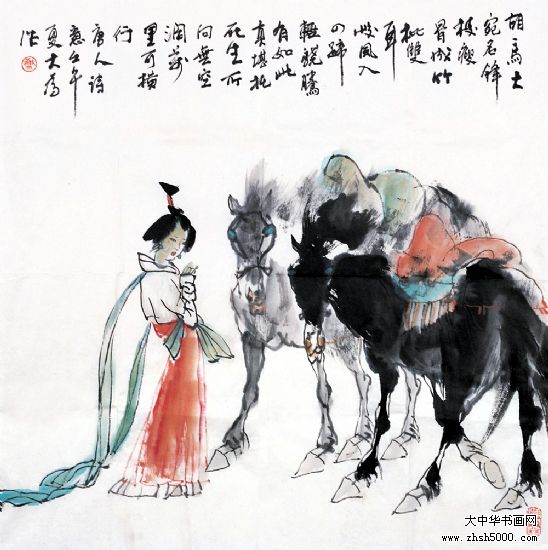 胡馬大
宛名鋒
棱瘦
骨成竹
批雙
耳
峻風入
四蹄
輕驍騰
有如此
真堪托
死生所
向無空
濶萬
里可橫
行
唐人詩
意年
夏大為
作
大中华书画网
www.zhsh5000.com